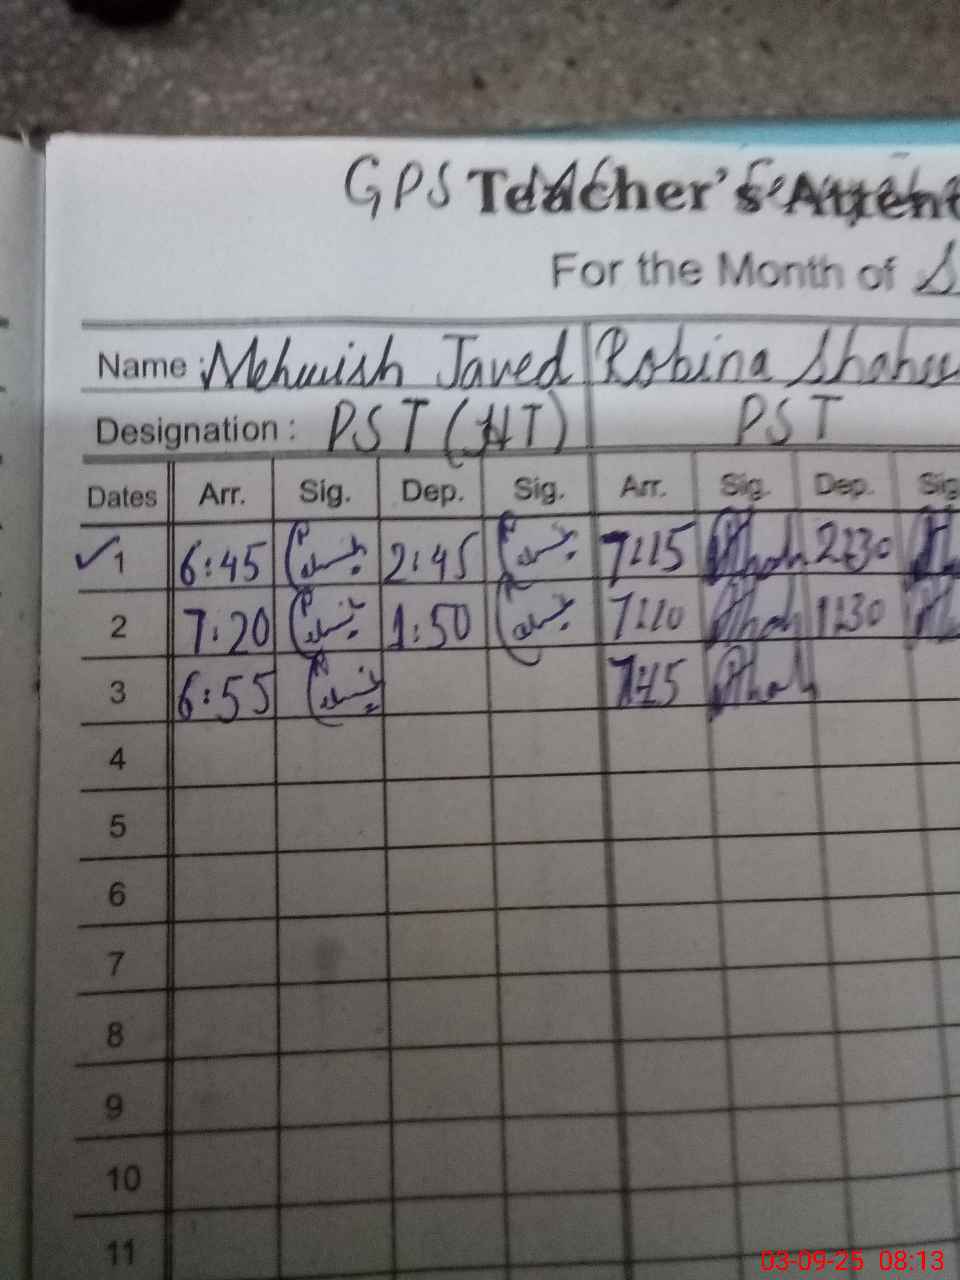 GPS Teacher's Atten
For the Month of S
Name : Mehwish Javed Robina Shahee
Designation : PST (HT) PST
Dates Arr. Sig. Dep. Sig. Arr. Sig. Dep. Sig
1 6:45 2:45 7:15 2:30
2 7:20 1:50 7:10 1:30
3 6:55
4
5
6
7
8
9
10
11
03-09-25 08:13